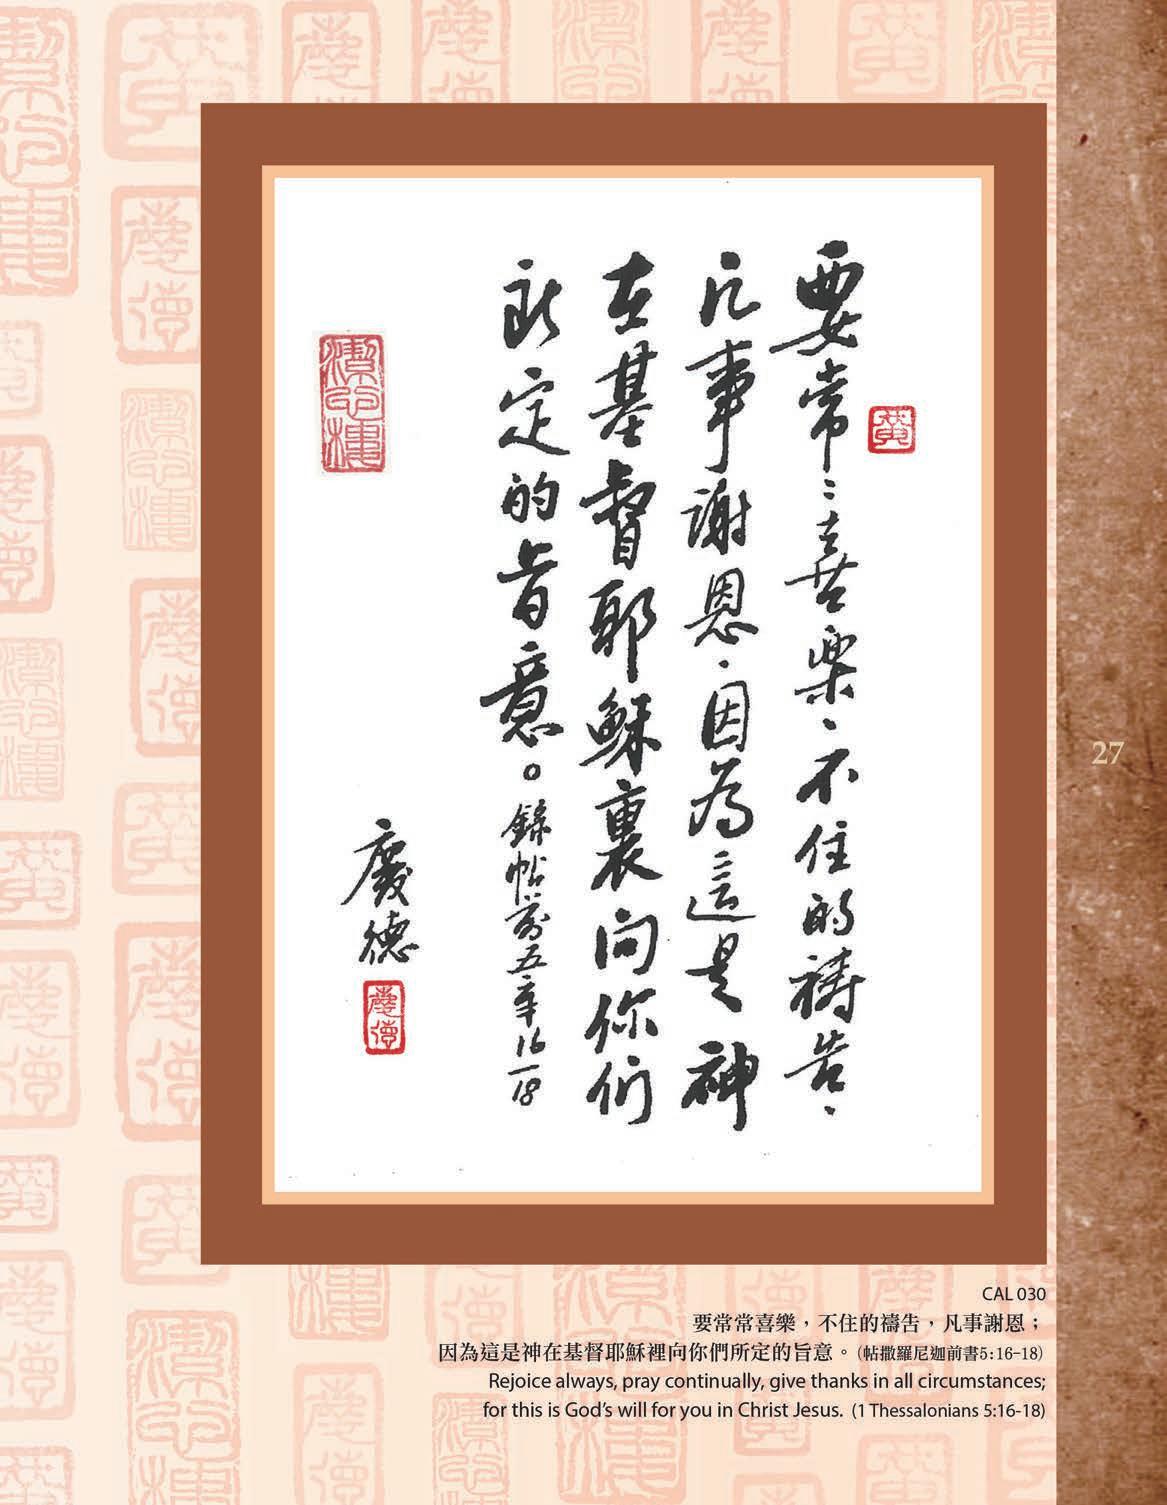 要常〻喜樂、不住的禱告、
凡事謝恩、因為這是神
在基督耶穌裏向你們
所定的旨意。錄帖前五章16-18
慶德
黃
慶德
27
CAL 030
要常常喜樂，不住的禱告，凡事謝恩；
因為這是神在基督耶穌裡向你們所定的旨意。(帖撒羅尼迦前書5:16-18)
Rejoice always, pray continually, give thanks in all circumstances;
for this is God’s will for you in Christ Jesus. (1 Thessalonians 5:16-18)